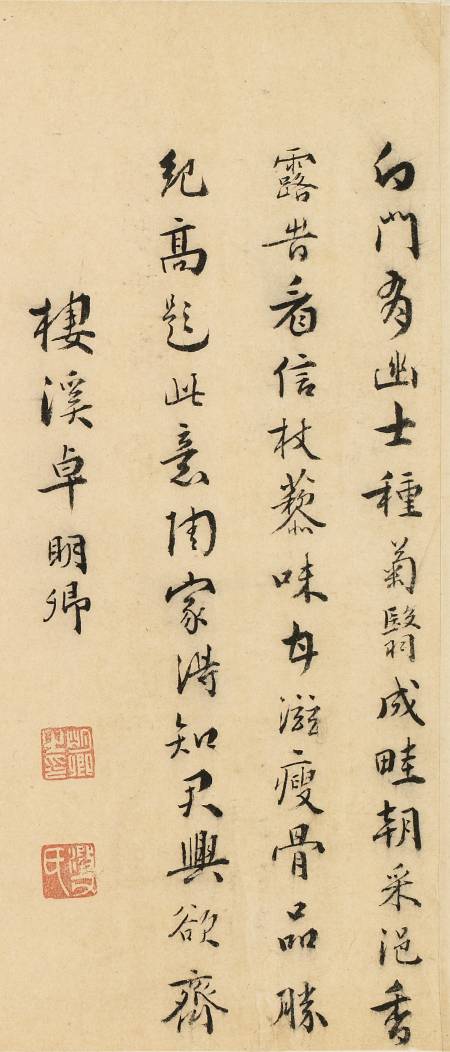 白門有幽士種菊翳成畦朝采浥香
露昔看信杖藜味甘滋瘦骨品勝
絕高題此意陶家得知君興欲齊
棲溪卓明卿